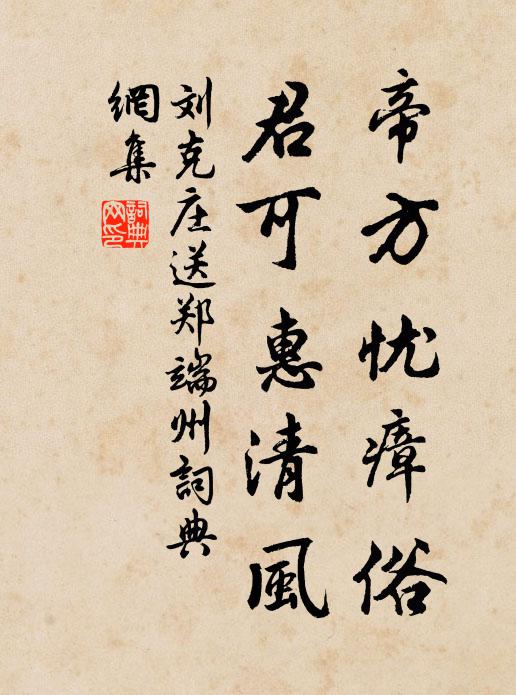 帝方忧瘴俗
君可惠清風
刘克庄送郑端州詞典
網集
詞典
网印